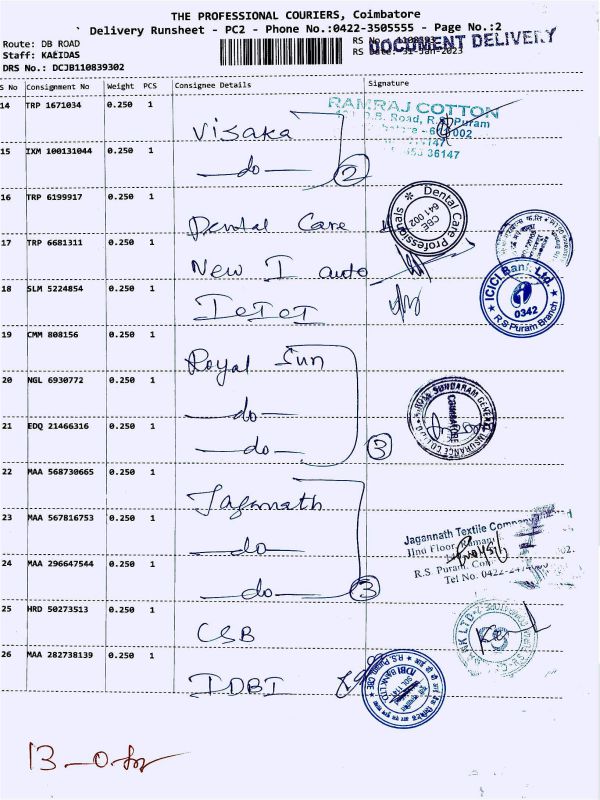 THE PROFESSIONAL COURIERS, Coimbatore
Delivery Runsheet - PC2 - Phone No.:0422-3505555 - Page No.:2
Route: DB ROAD
RS No
DOCUMENT DELIVERY
Staff: KAEIDAS
RS Date: 31-Jan-2023
DRS No.: DCJB110839302
S No Consignment No Weight PCS Consignee Details Signature
14 TRP 1671034 0.250 1 Visaka
RAMRAJ COTTON
D.B. Road, R.S. Puram
15 IXM 100131044 0.250 1 do
2
36147
16 TRP 6199917 0.250 1 Dental Care
Dental Care Professionals
CBE
641 002
17 TRP 6681311 0.250 1 New I auto
18 SLM 5224854 0.250 1 ICICI
ICICI Bank Ltd.
0342
R S Puram Branch
19 CMM 808156 0.250 1 Royal Sun
20 NGL 6930772 0.250 1 do
SUNDARAM GENERAL INSURANCE CO.
COIMBATORE
21 EDQ 21466316 0.250 1 do
3
22 MAA 568730665 0.250 1 Jagannath
23 MAA 567816753 0.250 1 do
Jagannath Textile Company
IInd Floor,
R.S. Puram,
Tel No. 0422-
24 MAA 296647544 0.250 1 do
3
25 HRD 50273513 0.250 1 CSB
26 MAA 282738139 0.250 1 IDBI
IDBI BANK LTD
R.S. Puram, CBE
13